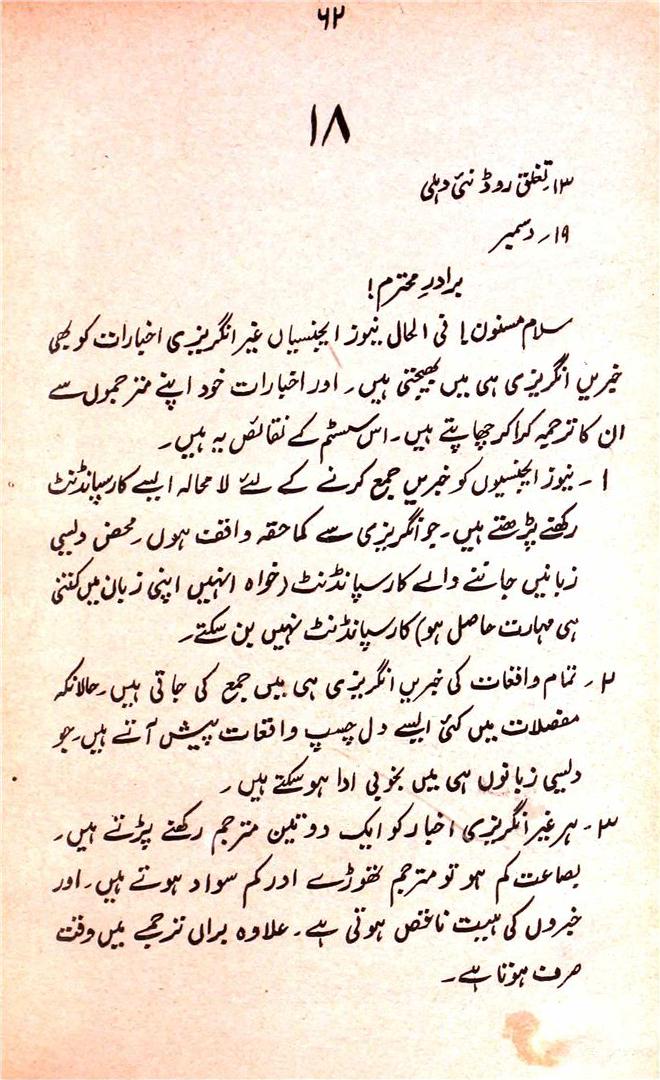 ۶۲
۱۸
۱۳۔ تغلق روڈ نئی دہلی
۱۹۔ دسمبر
برادرِ محترم!
سلام مسنون! فی الحال نیوز ایجنسیاں غیر انگریزی اخبارات کو بھی
خبریں انگریزی ہی میں بھیجتی ہیں۔ اور اخبارات خود اپنے مترجموں سے
ان کا ترجمہ کرا کر چھاپتے ہیں۔ اس سسٹم کے نقائص یہ ہیں۔
۱۔ نیوز ایجنسیوں کو خبریں جمع کرنے کے لئے لا محالہ ایسے کارسپانڈنٹ
رکھنے پڑھتے ہیں۔ جو انگریزی سے کما حقہ واقف ہوں۔ محض دیسی
زبانیں جاننے والے کارسپانڈنٹ (خواہ انہیں اپنی زبان میں کتنی
ہی مہارت حاصل ہو) کارسپانڈنٹ نہیں بن سکتے۔
۲۔ تمام واقعات کی خبریں انگریزی ہی میں جمع کی جاتی ہیں۔ حالانکہ
مفصلات میں کئی ایسے دل چسپ واقعات پیش آتے ہیں۔ جو
دلیسی زبانوں ہی میں بخوبی ادا ہو سکتے ہیں۔
۳۔ ہر غیر انگریزی اخبار کو ایک دو تین مترجم رکھنے پڑتے ہیں۔
بصاعت کم ہو تو مترجم تھوڑے اور کم سواد ہوتے ہیں۔ اور
خبروں کی ہیبت ناقص ہوتی ہے۔ علاوہ براں ترجمے میں وقت
صرف ہوتا ہے۔